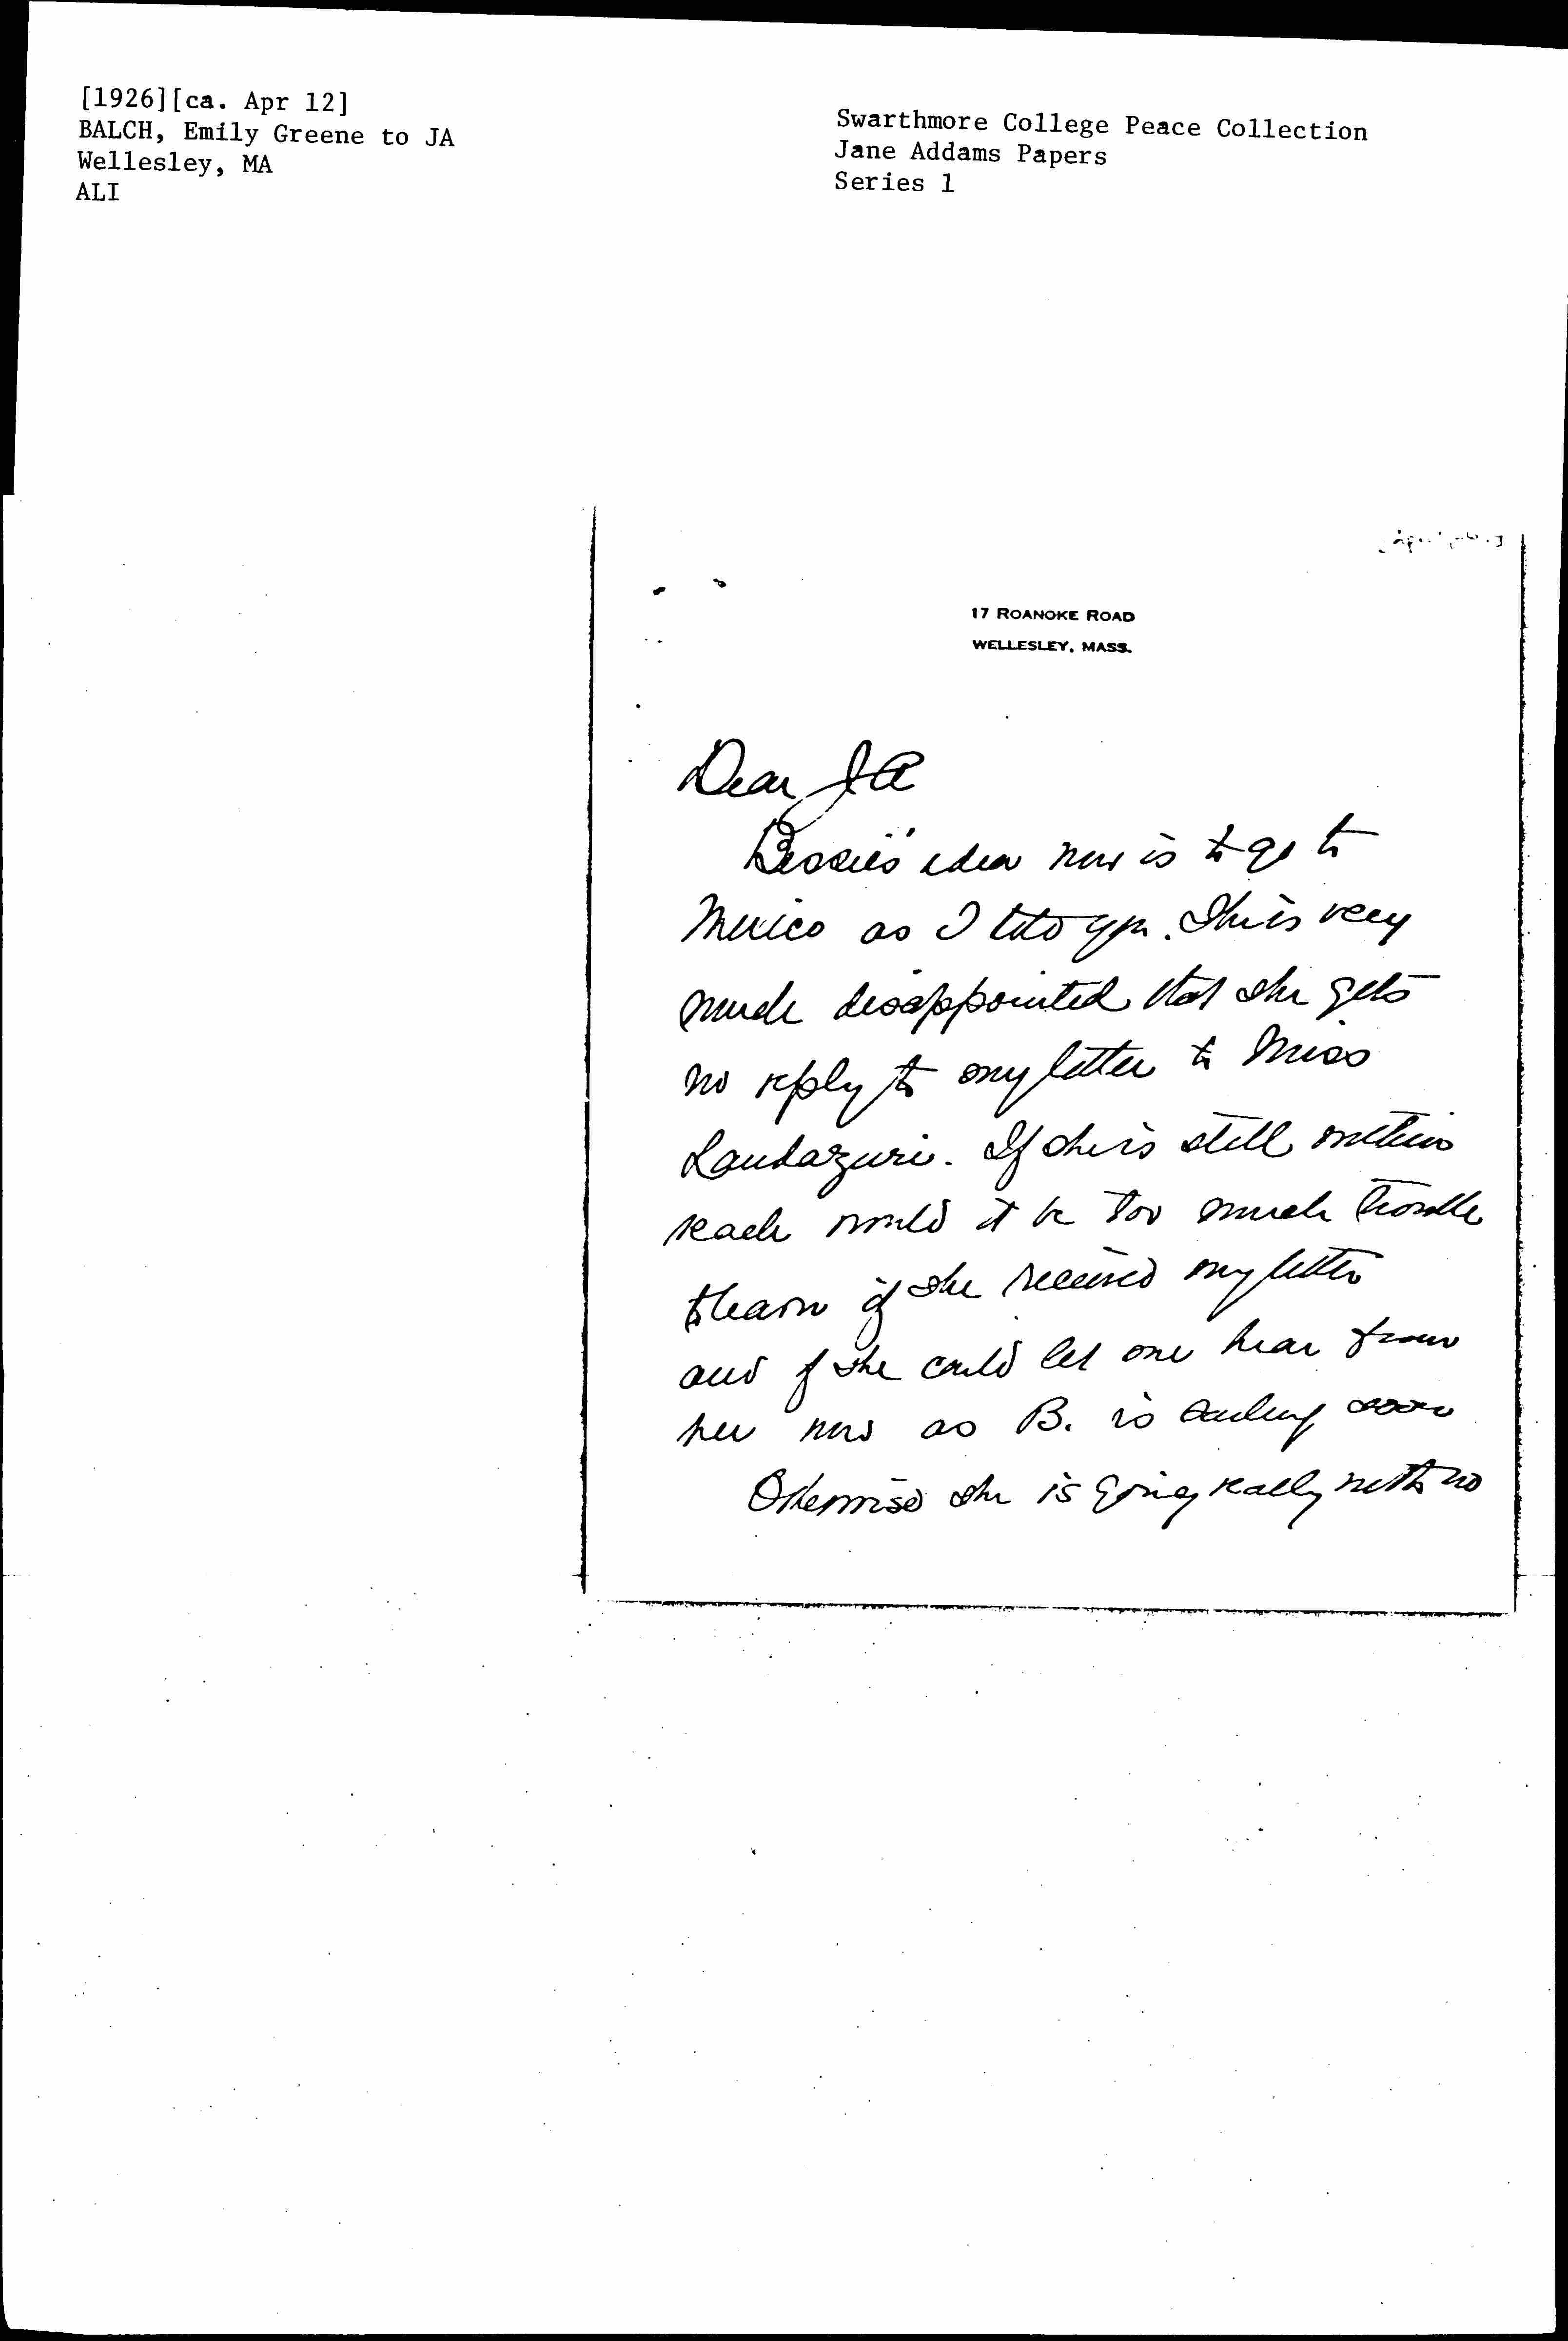 [1926][ca. Apr 12]
BALCH, Emily Greene to JA
Wellesley, MA
ALI
Swarthmore College Peace Collection
Jane Addams Papers
Series 1
17 ROANOKE ROAD
WELLESLEY, MASS.
Dear JA
Bessie's idea now is to go to
Mexico as I told you. She is very
much disappointed that she gets
no reply to my letter to Miss
Landazuri. If she is still within
reach would it be too much trouble
to learn if she received my letter
and if she could let one hear from
her now as B. is sailing soon
Otherwise she is going really with no